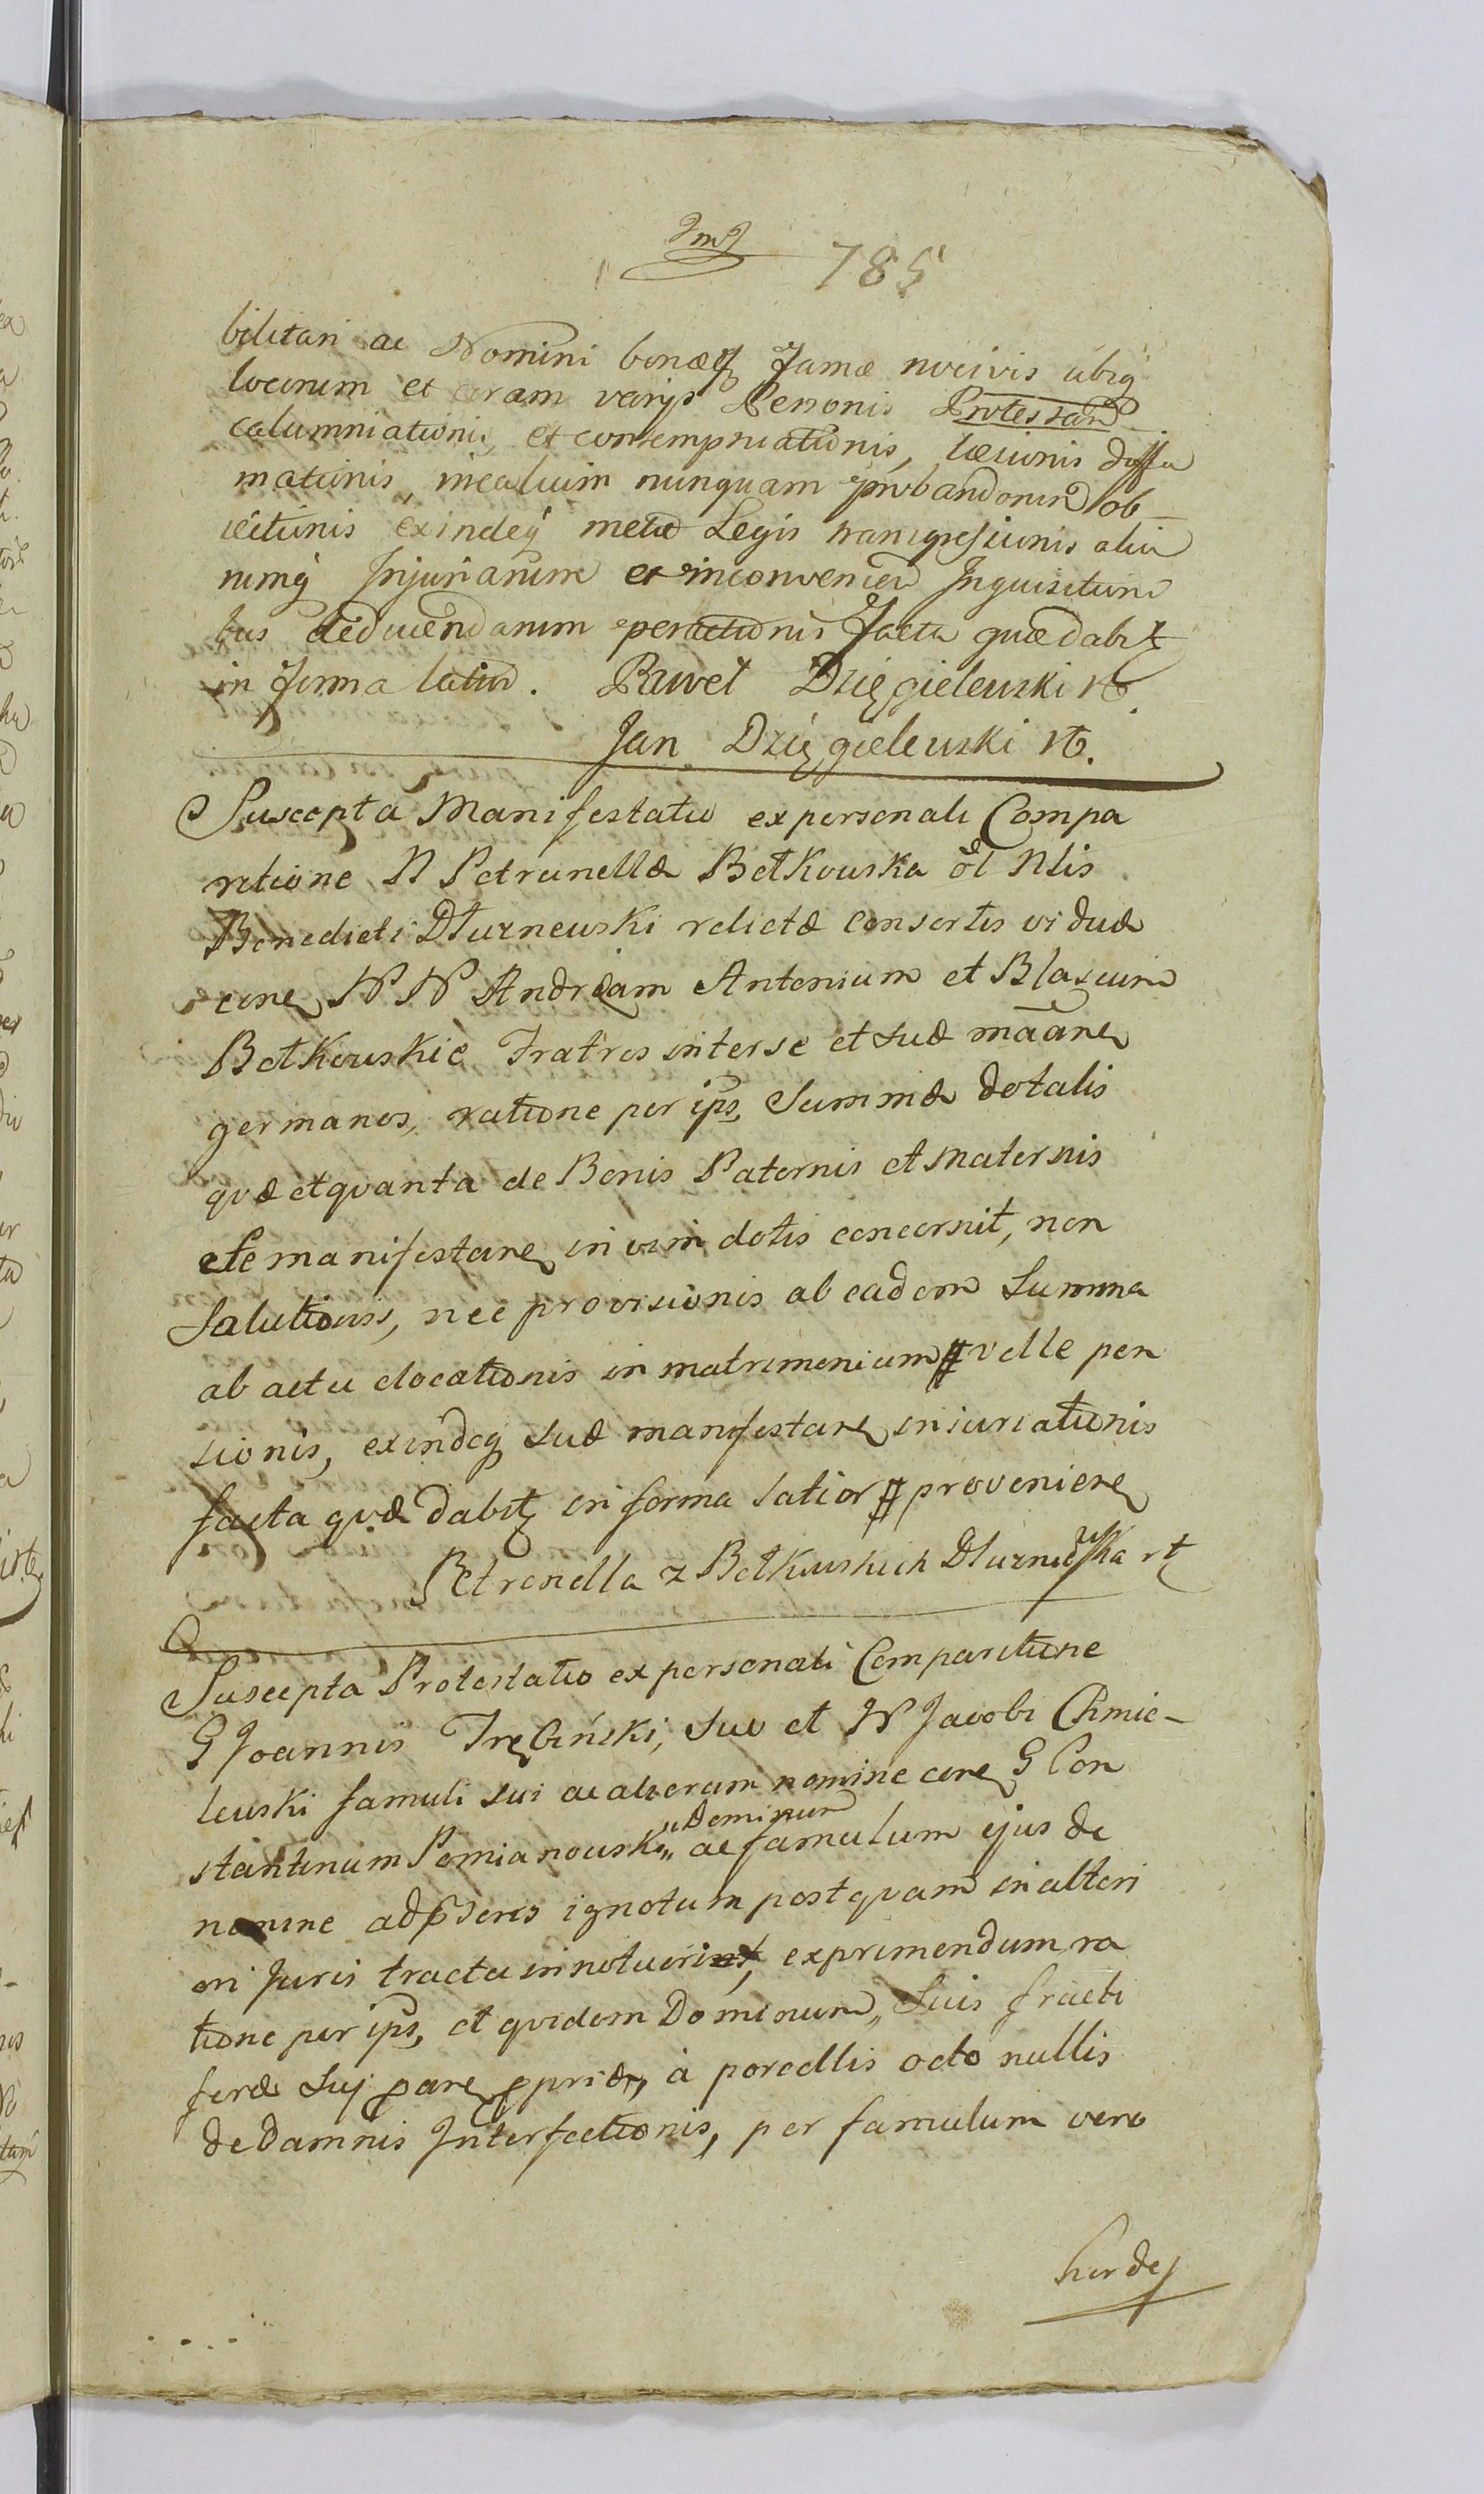 785
bilitari ac Nomini bonæq Famæ nocivis ubiq
locorum et coram varijs Personis Protestan
calumniationis, et contempnationis, læsionis diffa
mationis, mealium nunquam probandorum ob
iectionis exindeq metæ Legis transgressionis alia
rumq Injuriarum et inconvenien Inquisition
bus deducendarum peractionis facta quæ dabit
in forma latior. Paweł Dzięgielewski rt.
Jan Dzięgielewski rt.
Suscepta Manifestatio ex personali Compa
ritione N Petrunellæ Bełkowska ol Nlis
Benedicti Dłużnewski relictæ consortis viduæ
cone N N Andream Antonium et Blasium
Bełkowskie Fratres inter se et suæ maane
germanos, ratione per ips Summæ dotalis
quæ et quanta de Bonis Paternis et Maternis
eſe manifestane in vim dotis concernit, non
Solutionis, nec provisionis ab eadem Summa
ab actu elocationis in matrimonium velle pen
sionis, exindeq suæ manifestane iniuriationis
facta quæ dabit in forma latior proveniene
Petronella z Bełkowskich Dłużniewska rt
Suscepta Protestatio ex personali Comparitione
G Joannis Trębiński, suo et N Jacobi Chmie-
lewski famuli sui ac alioram nomine cone G Con
stantinum Pomianowski „Dominum ac famulum ejus de
nomine ad pdens ignotum postquam in alteri
ori Juris tractu innotuerint, exprimendum ra
tione per ips, et quidem Dominum, Suis fructi
feræ Suj pane ppriæ, à porcellis octo nullis
de damnis Interfectionis, per famulum vero
hor de